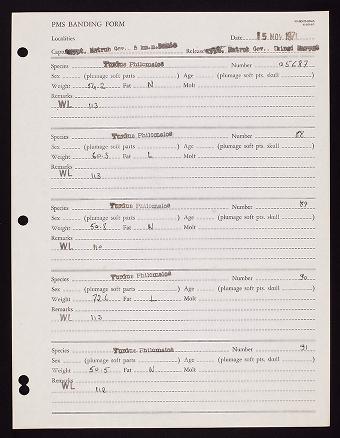 PMS BANDING FORM
Localities Date 15 NOV. 1971
Capt. Egypt, Matruh Gov. 5 km. Release Egypt, Matruh Gov.
Species Turdus Philomelos Number 05687
Sex (plumage soft parts ) Age (plumage soft pts. skull )
Weight 54.2 Fat N Molt
Remarks
WL 113
Turdus Philomelos 88
Species Number
Sex (plumage soft parts ) Age (plumage soft pts. skull )
Weight 60.3 Fat L Molt
Remarks
WL 113
Species Turdus Philomelos Number 89
Sex (plumage soft parts ) Age (plumage soft pts. skull )
Weight 50.8 Fat N Molt
Remarks
WL 110
Species Turdus Philomelos Number 90
Sex (plumage soft parts ) Age (plumage soft pts. skull )
Weight 72.6 Fat L Molt
Remarks
WL 113
Species Turdus Philomelos Number 91
Sex (plumage soft parts ) Age (plumage soft pts. skull )
Weight 50.5 Fat N Molt
Remarks
WL 112